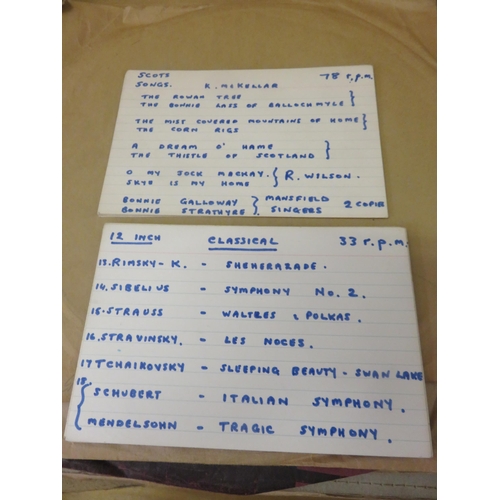 SCOTS 78 r.p.m.
SONGS. K. McKELLAR
THE ROWAN TREE
THE BONNIE LASS OF BALLOCHMYLE
THE MIST COVERED MOUNTAINS OF HOME
THE CORN RIGS
A DREAM O' HAME
THE THISTLE OF SCOTLAND
O MY JOCK MACKAY. R. WILSON.
SKYE IS MY HOME
BONNIE GALLOWAY MANSFIELD
BONNIE STRATHYRE SINGERS 2 COPIE
12 INCH CLASSICAL 33 r.p.m.
13. RIMSKY-K. - SHEHERAZADE.
14. SIBELIUS - SYMPHONY No. 2.
15. STRAUSS - WALTZES & POLKAS.
16. STRAVINSKY. - LES NOCES.
17 TCHAIKOVSKY - SLEEPING BEAUTY - SWAN LAKE
18 SCHUBERT - ITALIAN SYMPHONY.
MENDELSOHN - TRAGIC SYMPHONY.